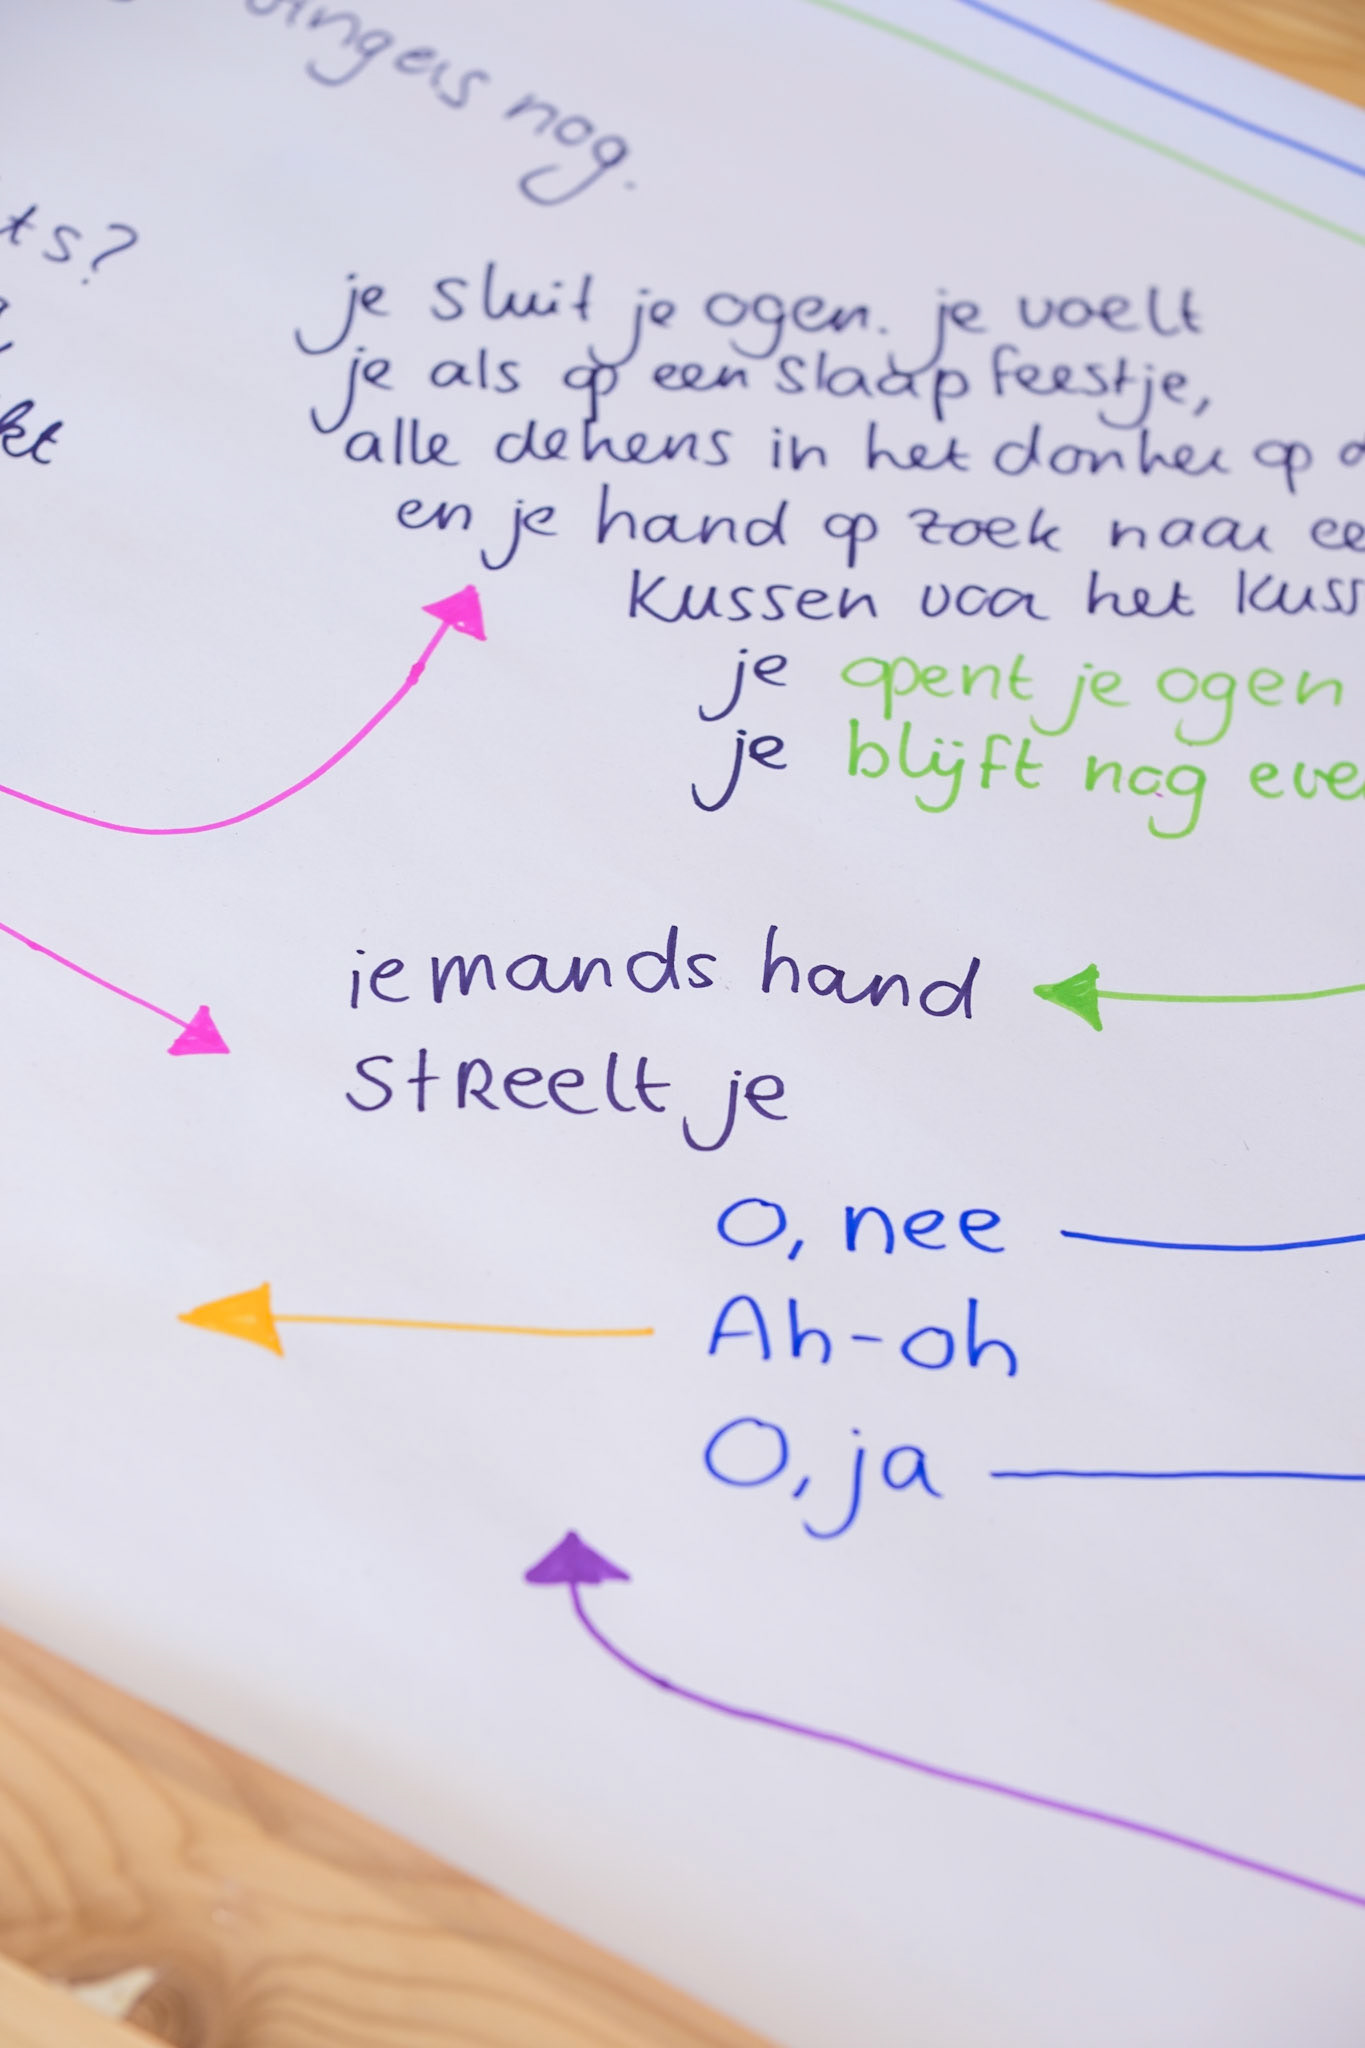 nog.
je sluit je ogen. je voelt
je als op een slaapfeestje,
alle dekens in het donker op
en je hand op zoek naar
kussen voor het
je opent je ogen
je blijft nog
iemands hand
streelt je
O, nee
Ah-oh
O, ja